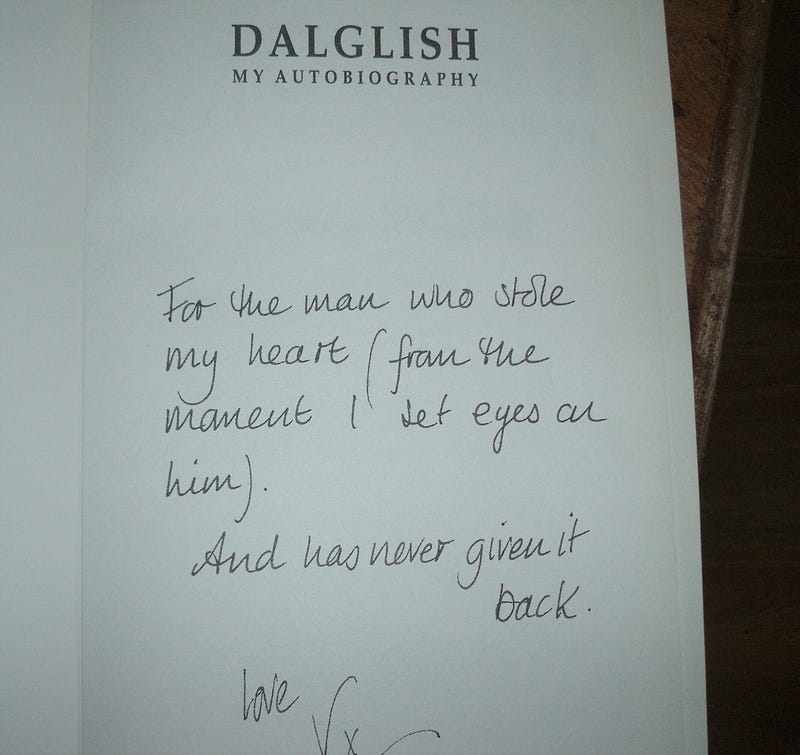 DALGLISH
MY AUTOBIOGRAPHY
For the man who stole
my heart (from the
moment I set eyes on
him).
And has never given it
back.
love
Vx